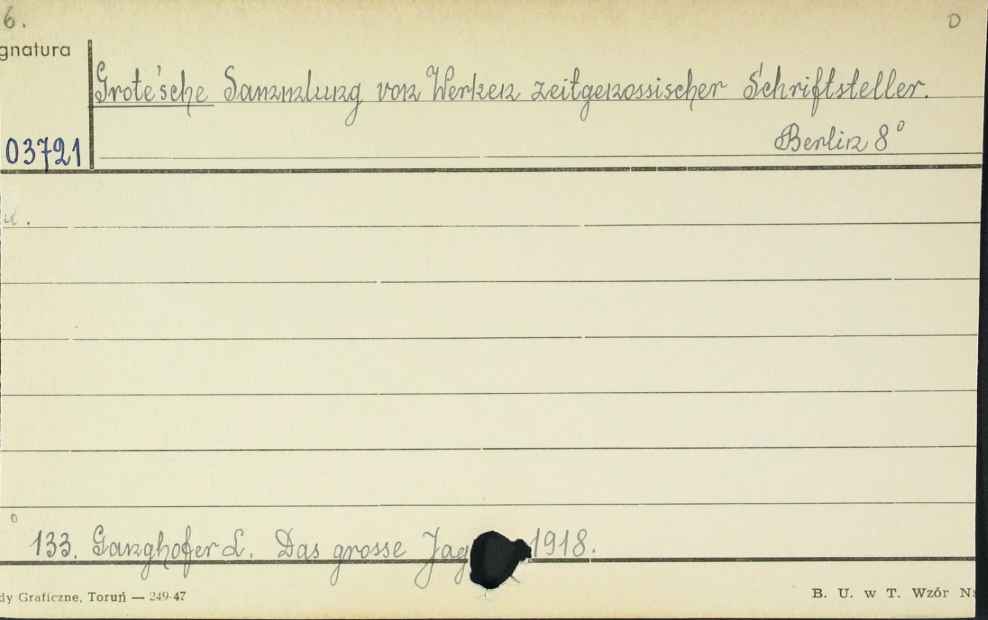 6. D
gnatura
Grote'sche Sammlung von Werken zeitgenossischer Schriftsteller.
03721 Berlin 8°
133. Ganghofer L. Das grosse Jag 1918.
dy Graficzne, Toruń — 249-47 B. U. w T. Wzór N